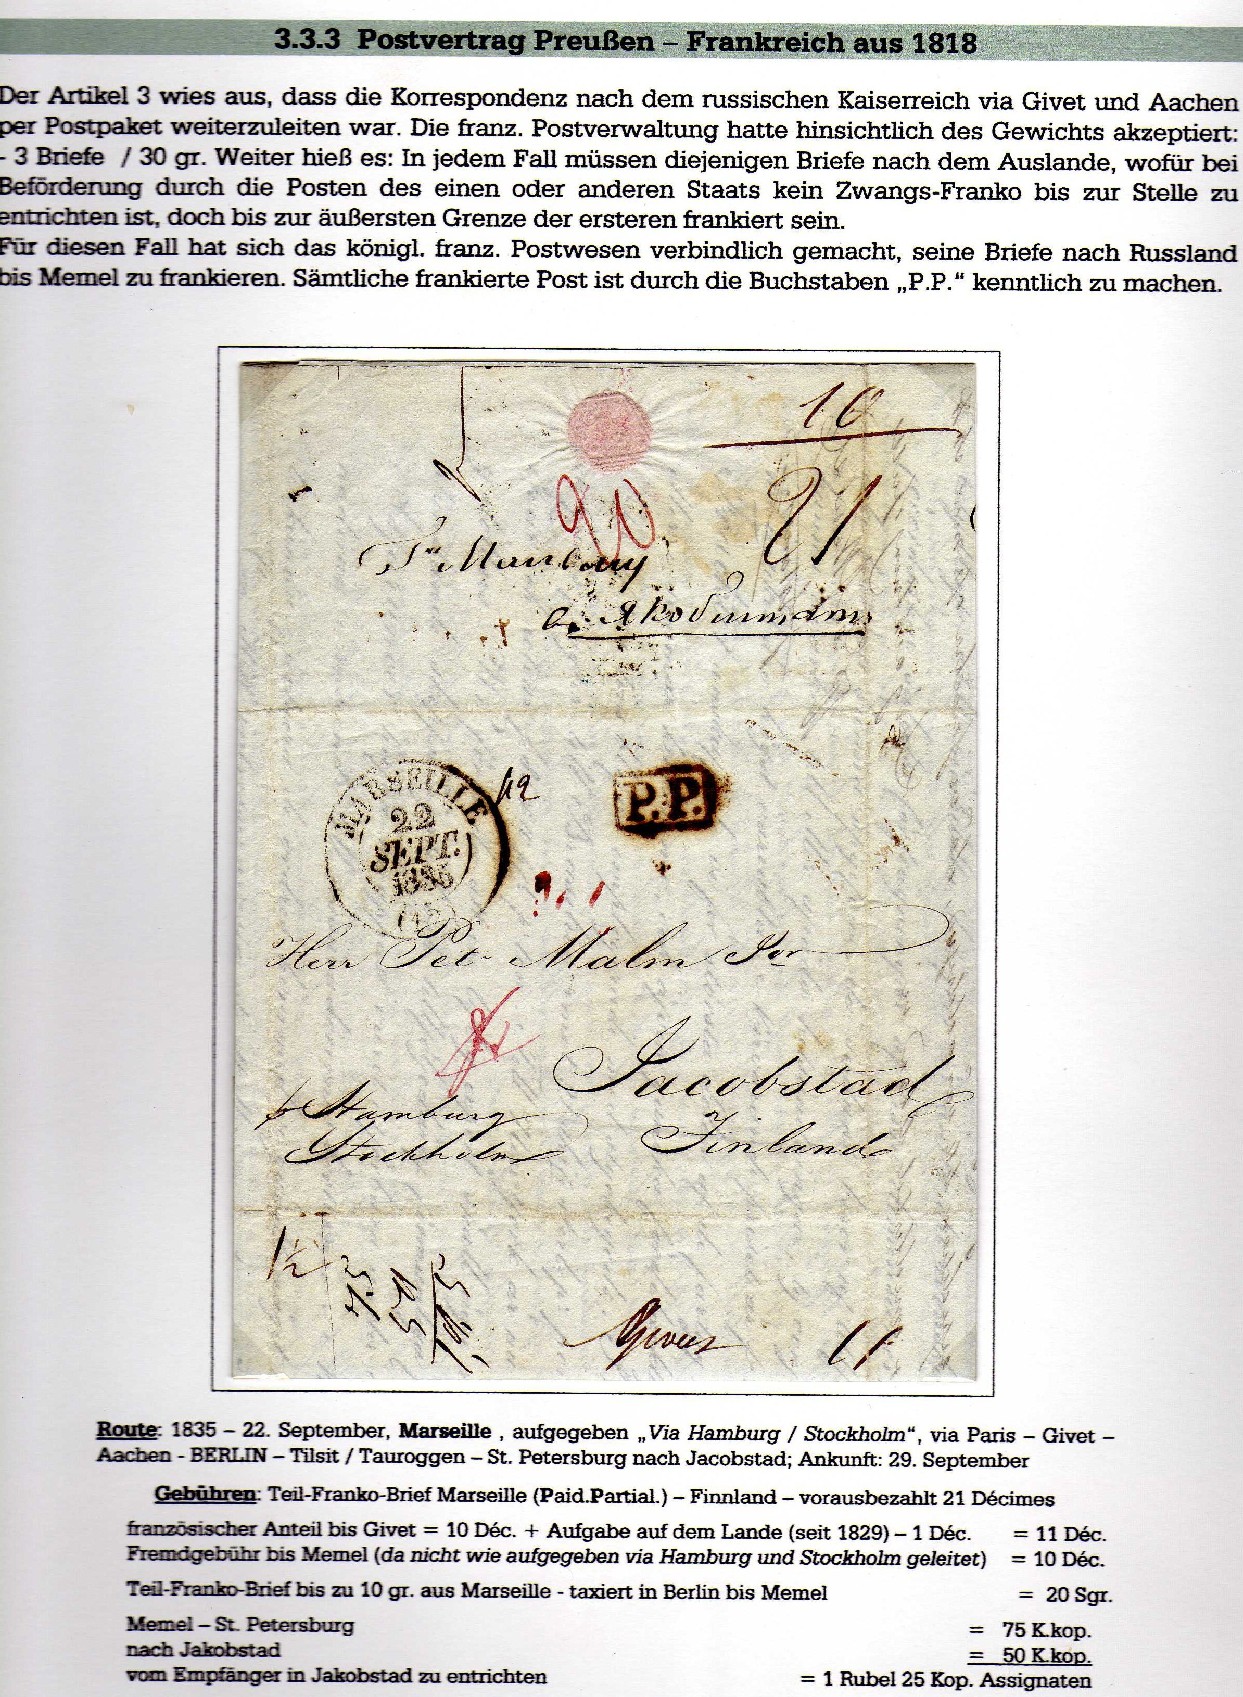 3.3.3 Postvertrag Preußen – Frankreich aus 1818
Der Artikel 3 wies aus, dass die Korrespondenz nach dem russischen Kaiserreich via Givet und Aachen
per Postpaket weiterzuleiten war. Die franz. Postverwaltung hatte hinsichtlich des Gewichts akzeptiert:
- 3 Briefe / 30 gr. Weiter hieß es: In jedem Fall müssen diejenigen Briefe nach dem Auslande, wofür bei
Beförderung durch die Posten des einen oder anderen Staats kein Zwangs-Franko bis zur Stelle zu
entrichten ist, doch bis zur äußersten Grenze der ersteren frankiert sein.
Für diesen Fall hat sich das königl. franz. Postwesen verbindlich gemacht, seine Briefe nach Russland
bis Memel zu frankieren. Sämtliche frankierte Post ist durch die Buchstaben „P.P.“ kenntlich zu machen.
10
20
21
MARSEILLE
22
SEPT.
1835
P.P.
Herr Pet. Malm Jor
Jacobstad
Finland
pr Hamburg
Stockholm
1½
Givet
11
Route: 1835 – 22. September, Marseille , aufgegeben „Via Hamburg / Stockholm“, via Paris – Givet –
Aachen - BERLIN – Tilsit / Tauroggen – St. Petersburg nach Jacobstad; Ankunft: 29. September
Gebühren: Teil-Franko-Brief Marseille (Paid.Partial.) – Finnland – vorausbezahlt 21 Décimes
französischer Anteil bis Givet = 10 Déc. + Aufgabe auf dem Lande (seit 1829) – 1 Déc. = 11 Déc.
Fremdgebühr bis Memel (da nicht wie aufgegeben via Hamburg und Stockholm geleitet) = 10 Déc.
Teil-Franko-Brief bis zu 10 gr. aus Marseille - taxiert in Berlin bis Memel = 20 Sgr.
Memel – St. Petersburg = 75 K.kop.
nach Jakobstad = 50 K.kop.
vom Empfänger in Jakobstad zu entrichten = 1 Rubel 25 Kop. Assignaten